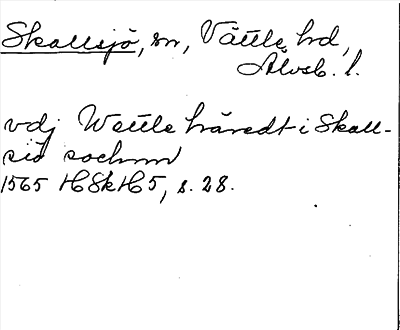 Skallsjö, sn, Vättle hrd,
Älvsb. l.
vdj Wettle häredt i Skall-
siö sochnn
1565 HSkH 5, s. 28.